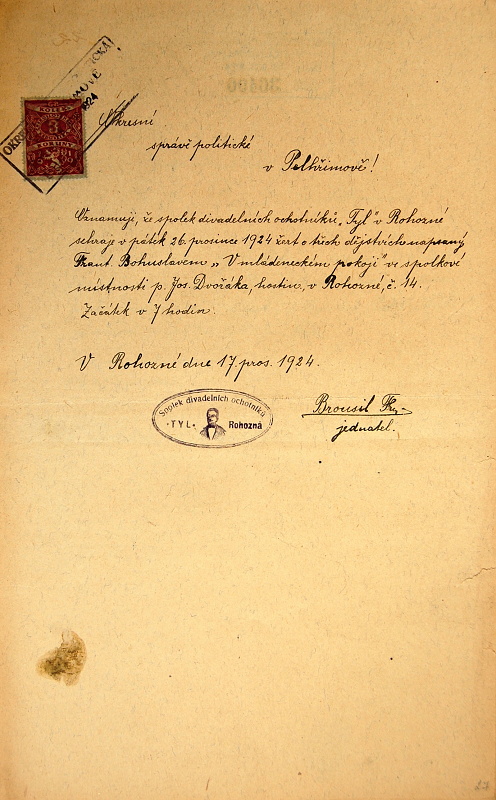 Okresní
správě politické
v Pelhřimově!
Oznamuji, že spolek divadelních ochotníků „Tyl" v Rohozné
sehraje v pátek 26. prosince 1924 žert o třech dějstvích napsaný
Frant. Bohuslavem „V mládeneckém pokoji" ve spolkové
místnosti p. Jos. Dvořáka, hostin., v Rohozné, č. 14.
Začátek v 7 hodin.
V Rohozné dne 17. pros. 1924.
Brousil Fr.
jednatel.
Spolek divadelních ochotníků
·TYL· Rohozná
KOLEK
3
KORUNY
1924
27